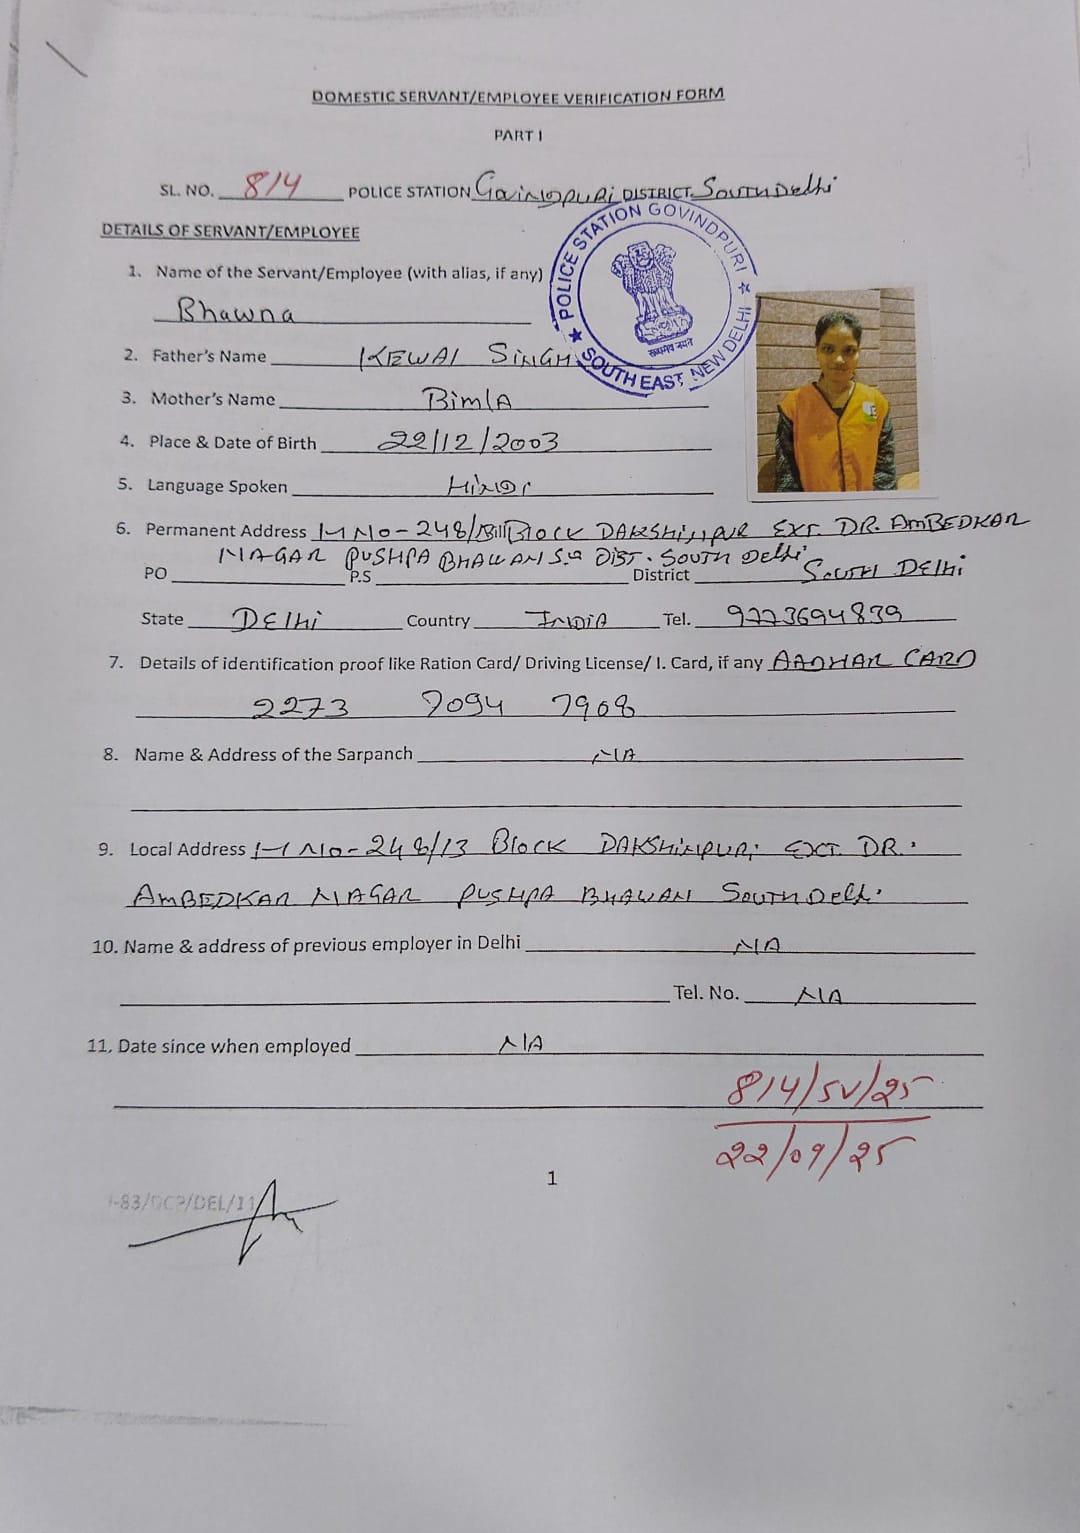 DOMESTIC SERVANT/EMPLOYEE VERIFICATION FORM
PART I
SL. NO. 814 POLICE STATION GovINDPURI DISTRICT. South Delhi
DETAILS OF SERVANT/EMPLOYEE
POLICE STATION GOVINDPURI ★ SOUTH EAST, NEW DELHI ★
सत्यमेव जयते
1. Name of the Servant/Employee (with alias, if any)
Bhawna
2. Father's Name KEWAL SINGH
3. Mother's Name BimlA
4. Place & Date of Birth 22/12/2003
5. Language Spoken HiNDI
6. Permanent Address H NO-248/ Block DAKSHINPUR EXT. DR. AMBEDKAR
NAGAR PUSHPA BHAWAN DIST. SOUTH Delhi
PO P.S District South DElhi
State DElhi Country INDIA Tel. 9773694839
7. Details of identification proof like Ration Card/ Driving License/ I. Card, if any AADHAR CARD
2273 7094 7908
8. Name & Address of the Sarpanch NA
9. Local Address H NO-248/13 Block DAKSHiNPURi EXT. DR.
AMBEDKAR NAGAR PUSHPA BHAWAN South Delhi
10. Name & address of previous employer in Delhi NA
Tel. No. NA
11. Date since when employed NA
814/SV/25
22/09/25
1
-83/DCP/DEL/11